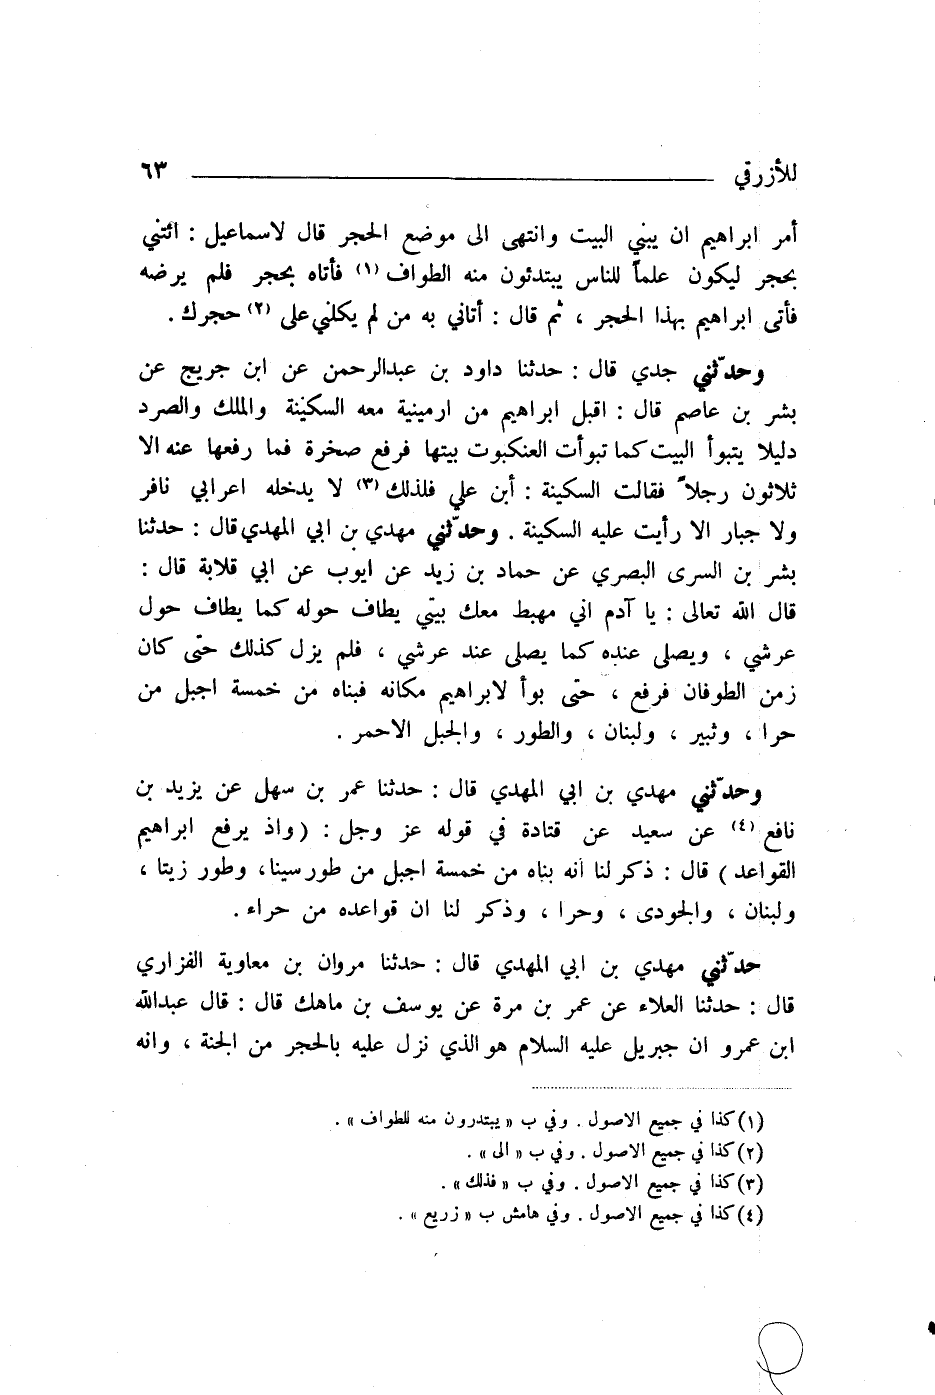 للأزرقي ٦٣
أمر ابراهيم ان يبني البيت وانتهى الى موضع الحجر قال لاسماعيل : ائتني
بحجر ليكون علماً للناس يبتدئون منه الطواف (١) فأتاه بحجر فلم يرضه
فأتى ابراهيم بهذا الحجر ، ثم قال : أتاني به من لم يكلني على (٢) حجرك .
وحدّثني جدي قال : حدثنا داود بن عبدالرحمن عن ابن جريج عن
بشر بن عاصم قال : اقبل ابراهيم من ارمينية معه السكينة والملك والصرد
دليلا يتبوأ البيت كما تبوأت العنكبوت بيتها فرفع صخرة فما رفعها عنه الا
ثلاثون رجلاً فقالت السكينة : أبن علي فلذلك (٣) لا يدخله اعرابي نافر
ولا جبار الا رأيت عليه السكينة . وحدّثني مهدي بن ابي المهدي قال : حدثنا
بشر بن السرى البصري عن حماد بن زيد عن ايوب عن ابي قلابة قال :
قال الله تعالى : يا آدم اني مهبط معك بيتي يطاف حوله كما يطاف حول
عرشي ، ويصلى عنده كما يصلى عند عرشي ، فلم يزل كذلك حتى كان
زمن الطوفان فرفع ، حتى بوأ لابراهيم مكانه فبناه من خمسة اجبل من
حرا ، وثبير ، ولبنان ، والطور ، والجبل الاحمر .
وحدّثني مهدي بن ابي المهدي قال : حدثنا عمر بن سهل عن يزيد بن
نافع (٤) عن سعيد عن قتادة في قوله عز وجل : ( واذ يرفع ابراهيم
القواعد ) قال : ذكر لنا أنه بناه من خمسة اجبل من طور سينا ، وطور زيتا ،
ولبنان ، والجودى ، وحرا ، وذكر لنا ان قواعده من حراء .
حدّثني مهدي بن ابي المهدي قال : حدثنا مروان بن معاوية الفزاري
قال : حدثنا العلاء عن عمر بن مرة عن يوسف بن ماهك قال : قال عبدالله
ابن عمرو ان جبريل عليه السلام هو الذي نزل عليه بالحجر من الجنة ، وانه
(١) كذا في جميع الاصول . وفي ب « يبتدرون منه للطواف » .
(٢) كذا في جميع الاصول . وفي ب « الى » .
(٣) كذا في جميع الاصول . وفي ب « فذلك » .
(٤) كذا في جميع الاصول . وفي هامش ب « زريع » .